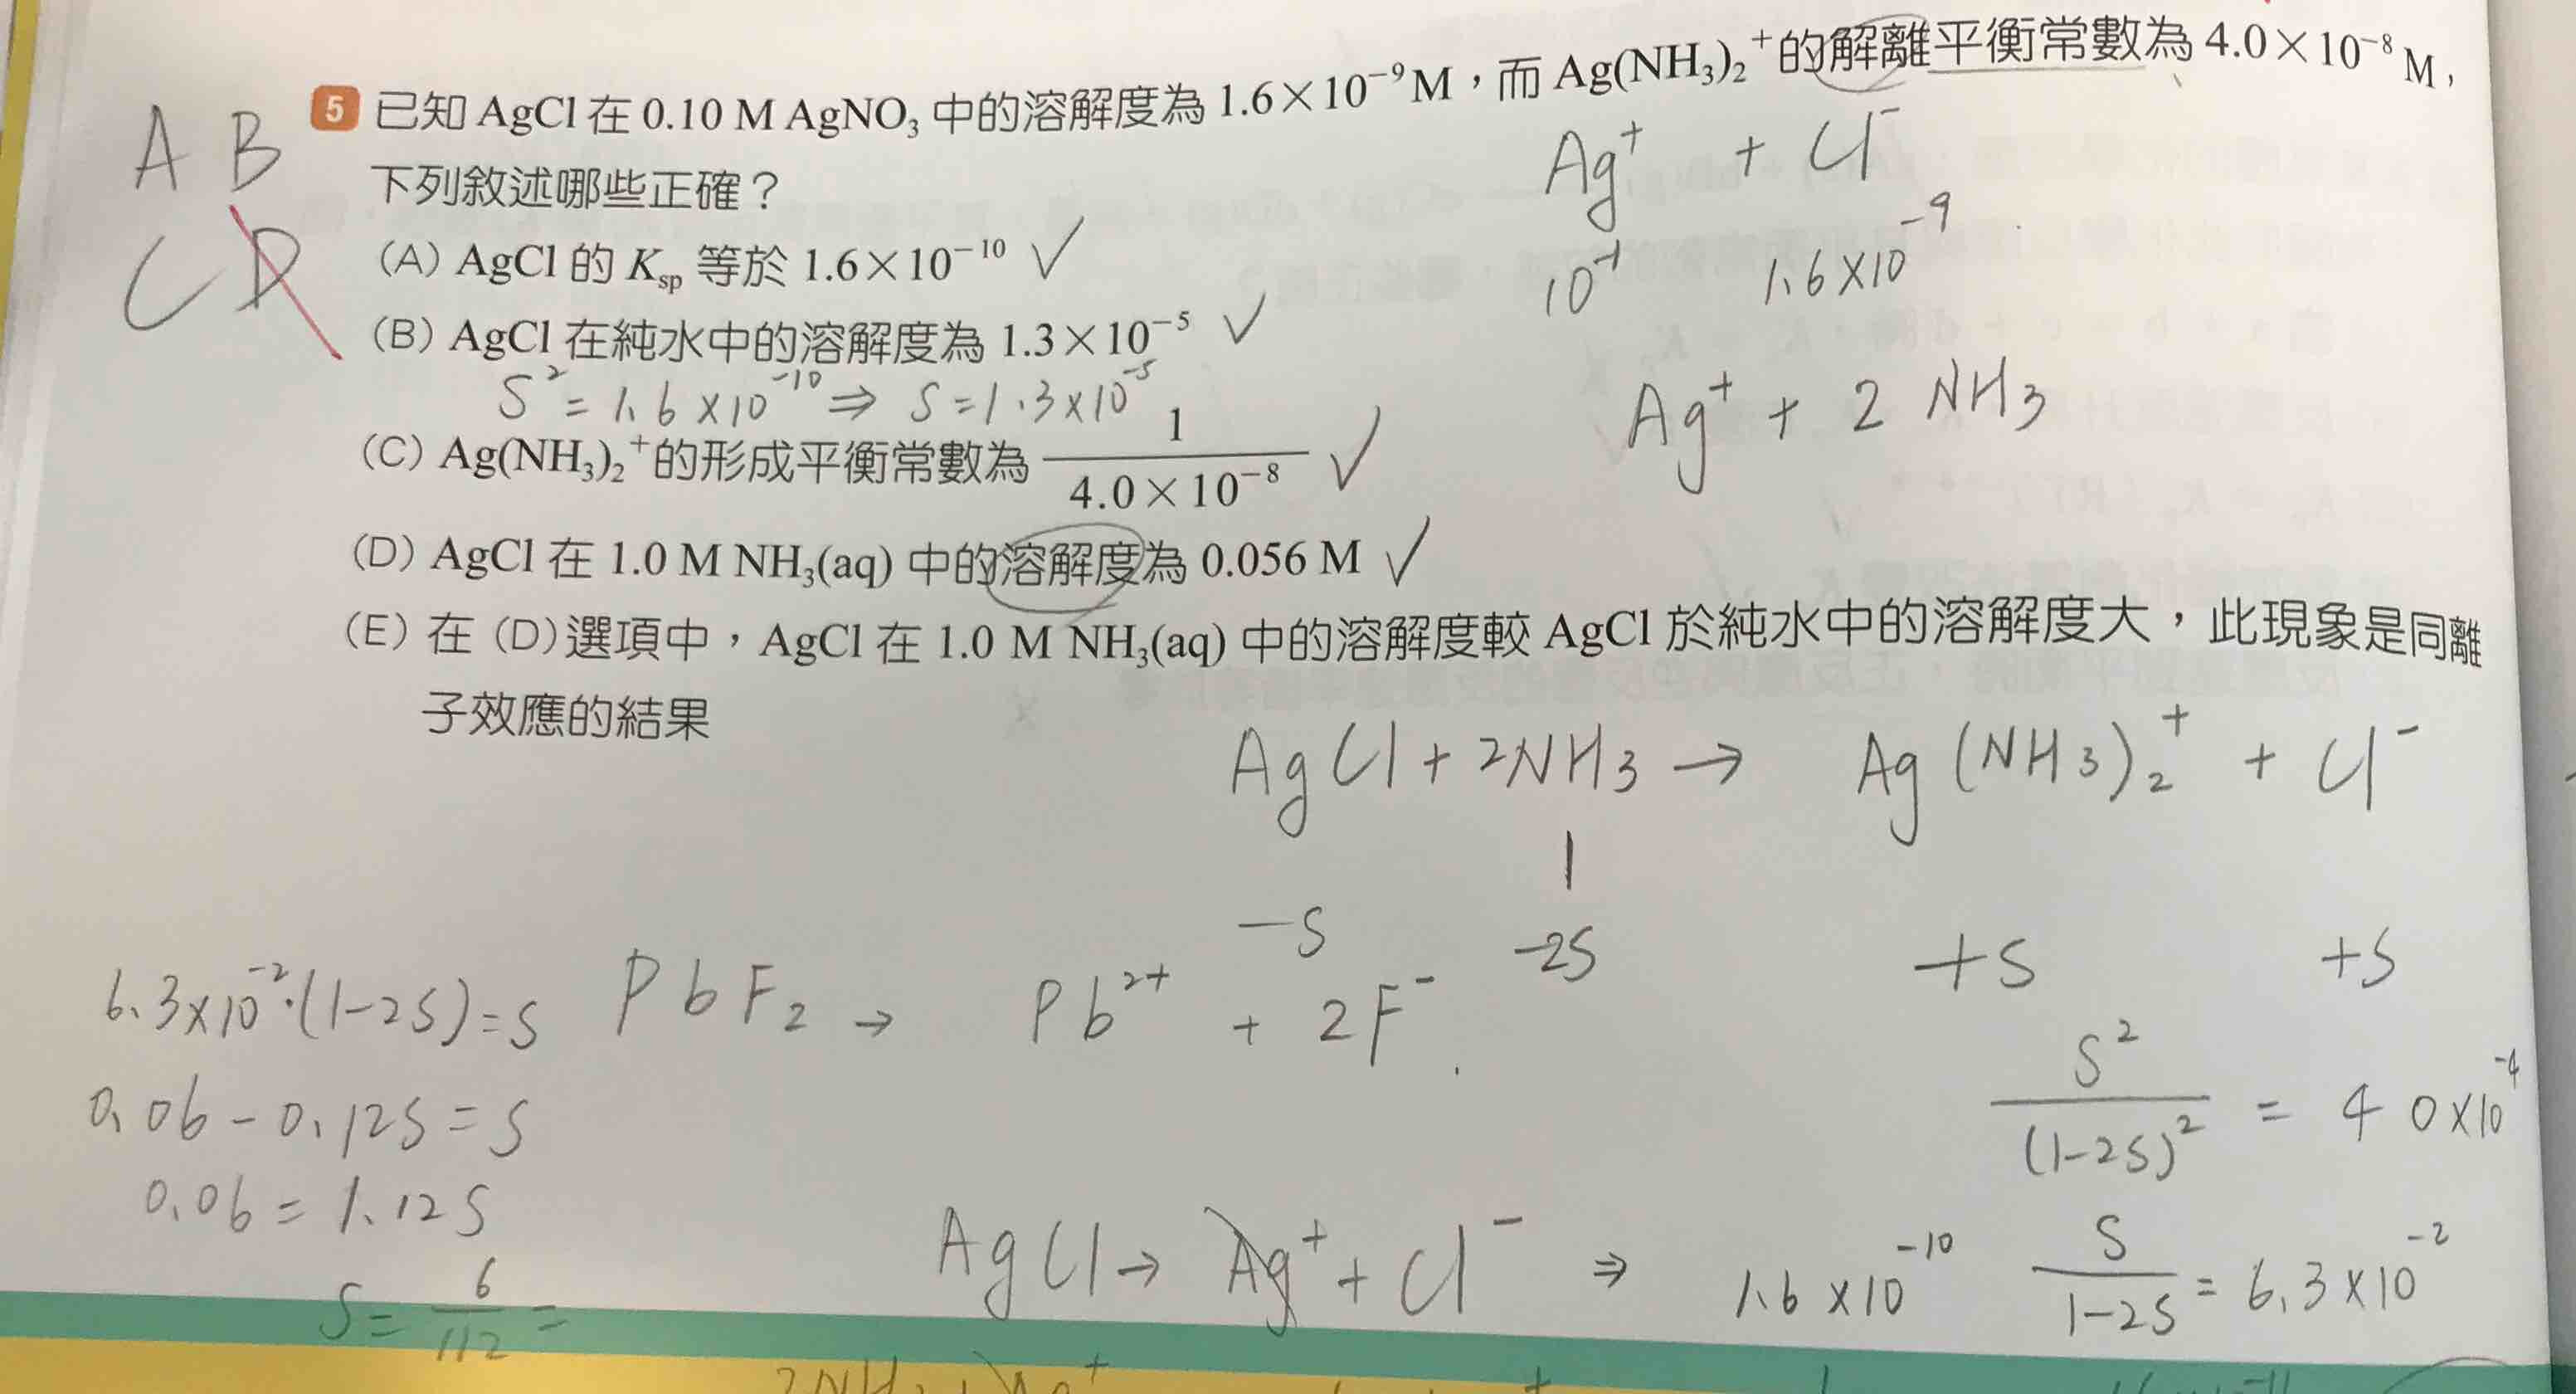 5 已知 AgCl 在 0.10 M AgNO₃ 中的溶解度為 1.6×10⁻⁹ M，而 Ag(NH₃)₂⁺的解離平衡常數為 4.0×10⁻⁸ M，
下列敘述哪些正確？
A B
C D
Ag⁺ + Cl⁻
10⁻¹ 1.6×10⁻⁹
(A) AgCl 的 Ksp 等於 1.6×10⁻¹⁰ ✓
(B) AgCl 在純水中的溶解度為 1.3×10⁻⁵ ✓
S² = 1.6×10⁻¹⁰ ⇒ S = 1.3×10⁻⁵
Ag⁺ + 2 NH3
(C) Ag(NH₃)₂⁺的形成平衡常數為 1/(4.0×10⁻⁸) ✓
(D) AgCl 在 1.0 M NH₃(aq) 中的溶解度為 0.056 M ✓
(E) 在 (D)選項中，AgCl 在 1.0 M NH₃(aq) 中的溶解度較 AgCl 於純水中的溶解度大，此現象是同離
子效應的結果
AgCl + 2NH3 → Ag(NH3)₂⁺ + Cl⁻
1
-S -2S +S +S
6.3×10⁻²·(1-2S)=S
PbF₂ → Pb²⁺ + 2F⁻
S²/(1-2S)² = 4 0×10⁻⁴
0.06 - 0.12S = S
0.06 = 1.12S
S = 6/112 =
AgCl → Ag⁺ + Cl⁻ ⇒ 1.6×10⁻¹⁰
S/(1-2S) = 6.3×10⁻²